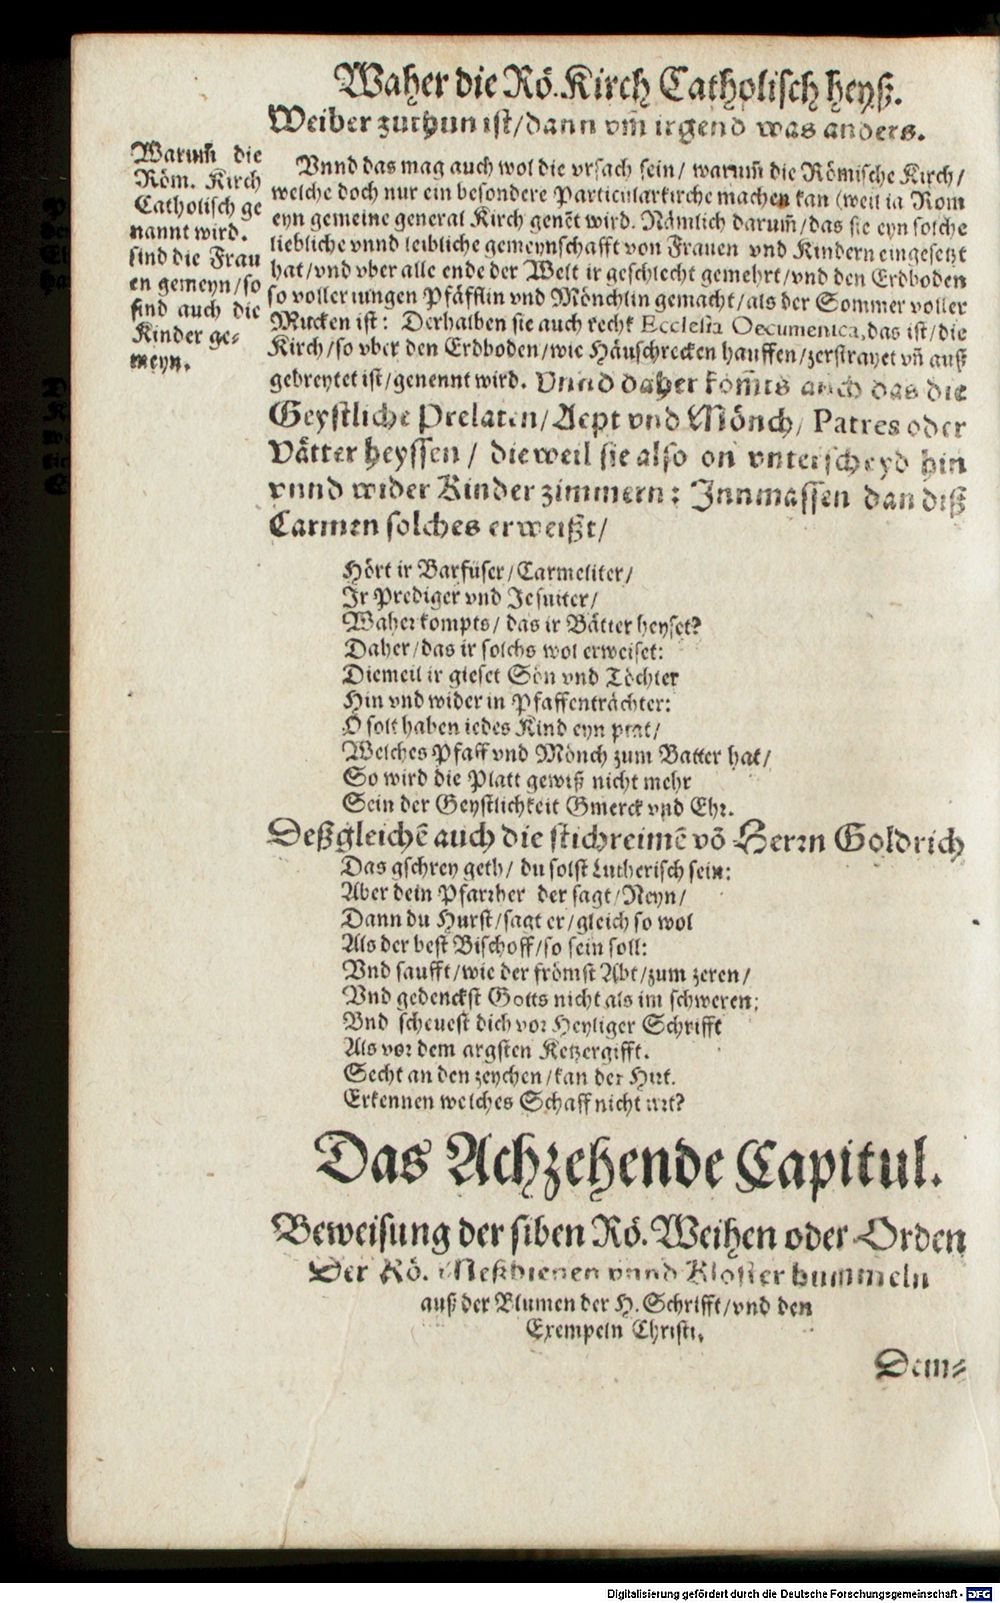 Waher die Rö. Kirch Catholisch heyß.
Weiber zuthun ist/dann vm̃ irgend was anders.
Warum̃ die
Röm. Kirch
Catholisch ge
nannt wird.
sind die Frau
en gemeyn/so
sind auch die
Kinder ge⸗
meyn.
Vnnd das mag auch wol die vrsach sein/ warum̃ die Römische Kirch/
welche doch nur ein besondere Particularkirche machen kan (weil ia Rom
eyn gemeine general Kirch genēt wird. Nämlich darum̃/das sie eyn solche
liebliche vnnd leibliche gemeynschafft von Frauen vnd Kindern eingesetzt
hat/vnd vber alle ende der Welt ir geschlecht gemehrt/vnd den Erdboden
so voller iungen Pfäfflin vnd Mönchlin gemacht/als der Sommer voller
Mucken ist: Derhalben sie auch recht Ecclesia Oecumenica,das ist/die
Kirch/so vber den Erdboden/wie Häuschrecken hauffen/zerstrayet vn̄ auß
gebreytet ist/genennt wird. Vnnd daher kom̃ts auch das die
Geystliche Prelaten/Aept vnd Mönch/ Patres oder
Vätter heyssen/ dieweil sie also on vnterscheyd hin
vnnd wider Kinder zimmern: Innmassen dan diß
Carmen solches erweißt/
Hört ir Barfüser/Carmeliter/
Ir Prediger vnd Jesuiter/
Waher kompts/ das ir Vätter heyset?
Daher/das ir solchs wol erweiset:
Diemeil ir gieset Sön vnd Töchter
Hin vnd wider in Pfaffenträchter:
O solt haben iedes Kind eyn plat/
Welches Pfaff vnd Mönch zum Vatter hat/
So wird die Platt gewiß nicht mehr
Sein der Geystlichkeit Gmerck vnd Ehr.
Deßgleichē auch die stichreimē vō Herrn Goldrich
Das gschrey geth/ du solst Lutherisch sein:
Aber dein Pfarrher der sagt/Neyn/
Dann du Hurst/sagt er/gleich so wol
Als der best Bischoff/so sein soll:
Vnd saufft/wie der frömst Abt/zum zeren/
Vnd gedenckst Gotts nicht als im schweren;
Vnd scheuest dich vor Heyliger Schrifft
Als vor dem argsten Ketzergifft.
Secht an den zeychen/kan der Hirt.
Erkennen welches Schaff nicht irrt?
Das Achzehende Capitul.
Beweisung der siben Rö. Weihen oder Orden
Der Rö. Meßbienen vnnd Kloster hummeln
auß der Blumen der H. Schrifft/vnd den
Exempeln Christi.
Dem⸗
Digitalisierung gefördert durch die Deutsche Forschungsgemeinschaft - DFG